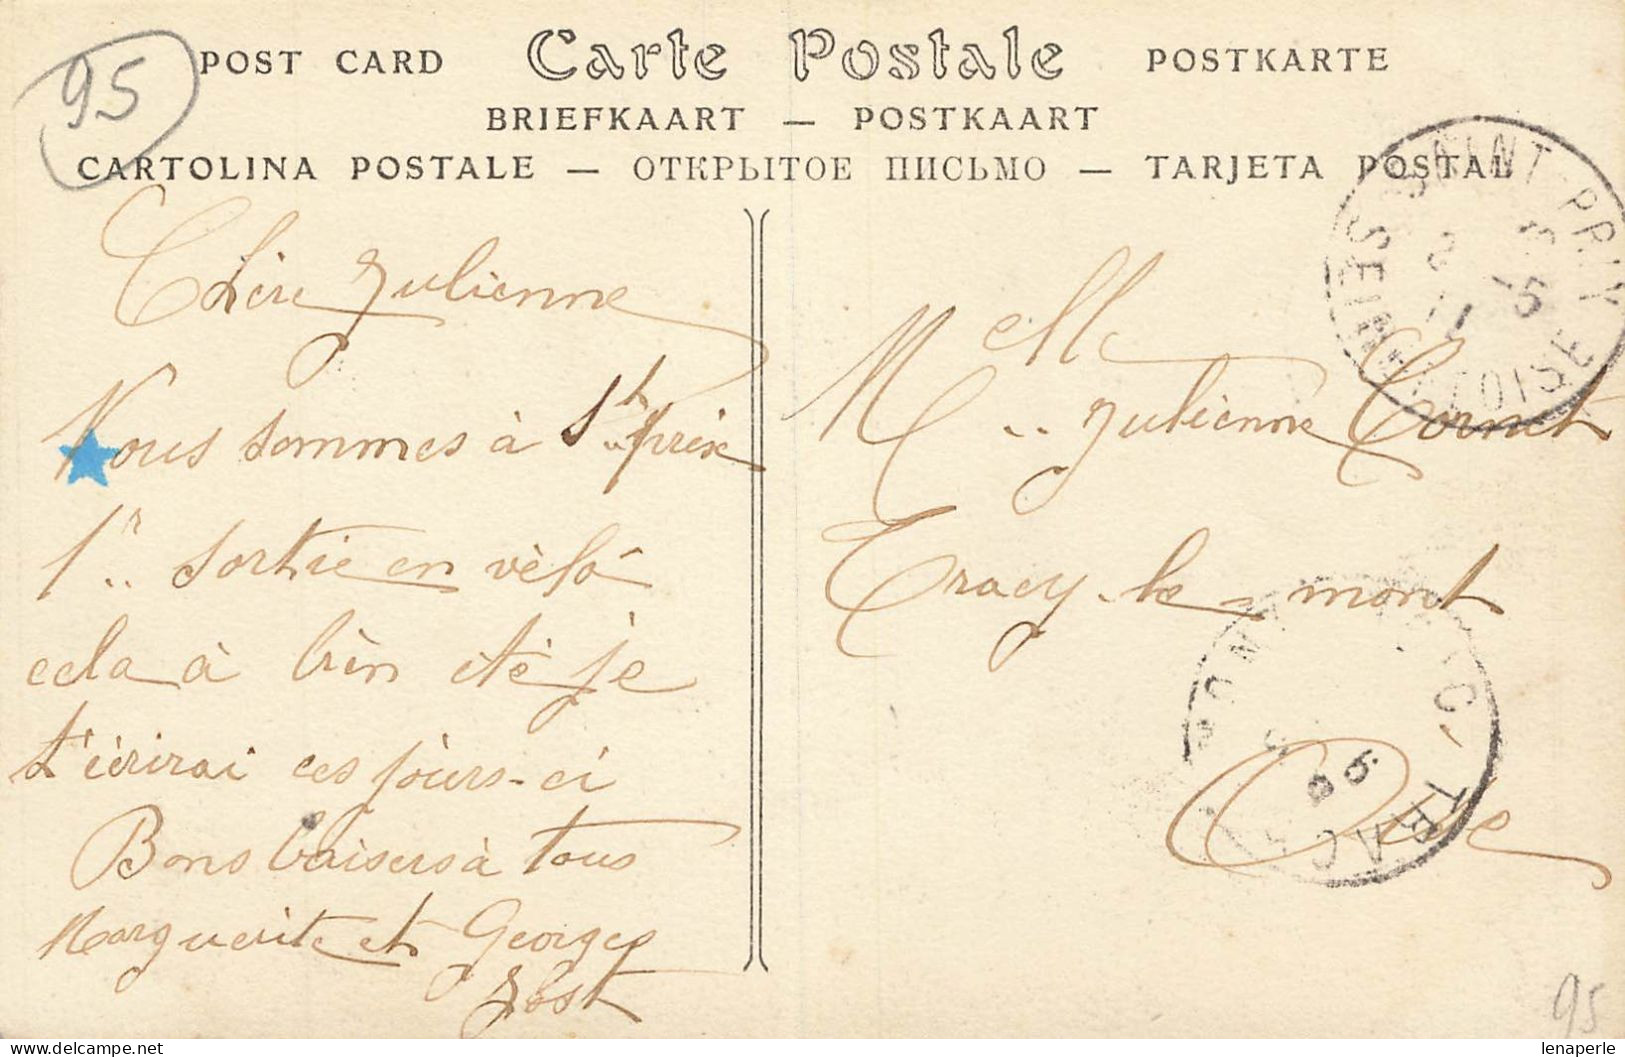 95
POST CARD Carte Postale POSTKARTE
BRIEFKAART — POSTKAART
CARTOLINA POSTALE — ОТКРЫТОЕ ПИСЬМО — TARJETA POSTAL
SAINT-PRIX
SEINE-ET-OISE
Chère Julienne
Nous sommes à St prix
1r sortie en vèlo
cela à bien été je
t'écrirai ces jours-ci
Bons baisers à tous
Marguerite et Georges
Jost
Melle Julienne Cornet
Tracy-le-mont
Oise
TRACY
MONT
95
lenaperle